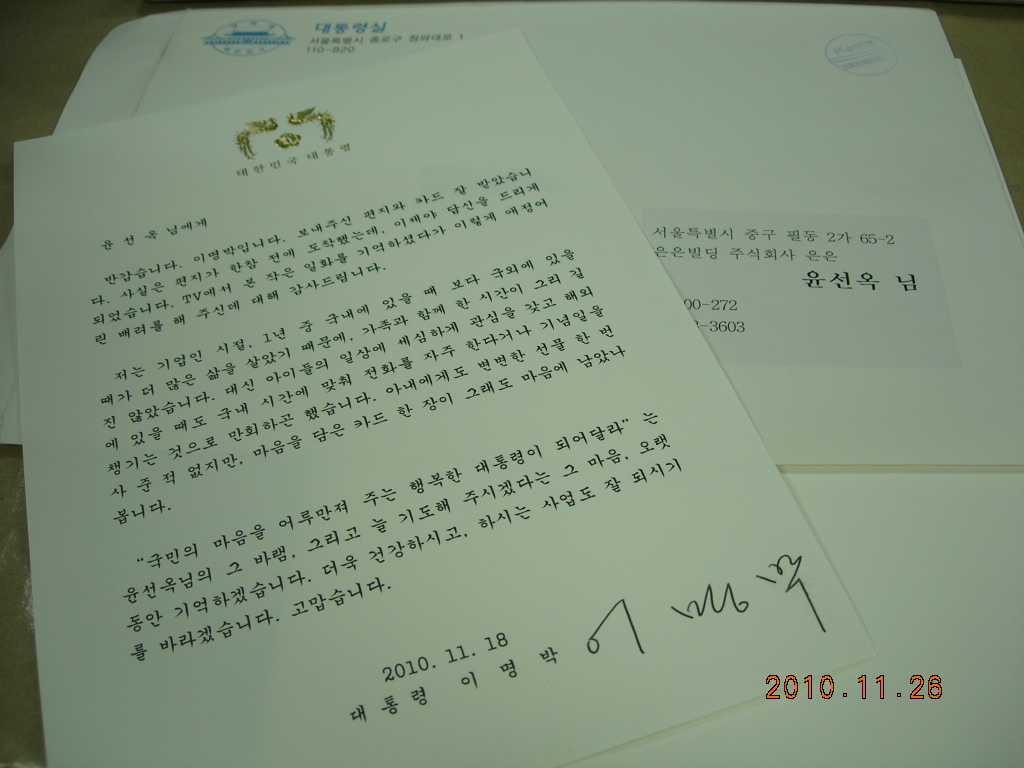 대통령실
서울특별시 종로구 청와대로 1
110-820
대한민국 대통령
윤 선 옥 님에게
반갑습니다. 이명박입니다. 보내주신 편지와 카드 잘 받았습니
다. 사실은 편지가 한참 전에 도착했는데, 이제야 답신을 드리게
되었습니다. TV에서 본 작은 일화를 기억하셨다가 이렇게 애정어
린 배려를 해 주신데 대해 감사드립니다.
저는 기업인 시절, 1년 중 국내에 있을 때 보다 국외에 있을
때가 더 많은 삶을 살았기 때문에, 가족과 함께 한 시간이 그리 길
진 않았습니다. 대신 아이들의 일상에 세심하게 관심을 갖고 해외
에 있을 때도 국내 시간에 맞춰 전화를 자주 한다거나 기념일을
챙기는 것으로 만회하곤 했습니다. 아내에게도 변변한 선물 한 번
사 준 적 없지만, 마음을 담은 카드 한 장이 그래도 마음에 남았나
봅니다.
“국민의 마음을 어루만져 주는 행복한 대통령이 되어달라” 는
윤선옥님의 그 바램, 그리고 늘 기도해 주시겠다는 그 마음, 오랫
동안 기억하겠습니다. 더욱 건강하시고, 하시는 사업도 잘 되시기
를 바라겠습니다. 고맙습니다.
2010. 11. 18
대 통 령 이 명 박
이명박
서울특별시 중구 필동 2가 65-2
은은빌딩 주식회사 은은
윤선옥 님
00-272
-3603
2010.11.26